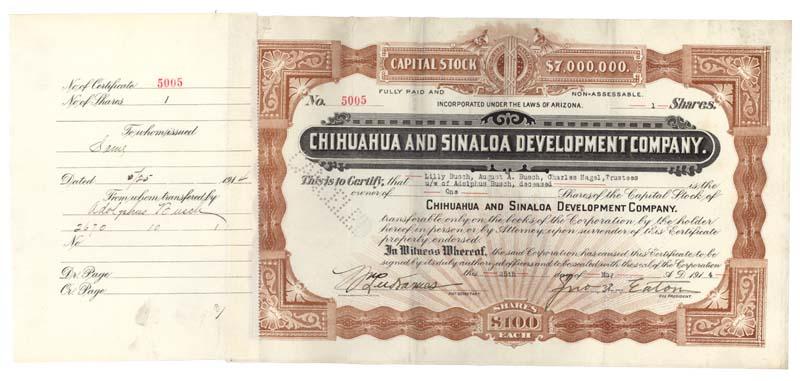 No. of Certificate 5005
No. of Shares 1
To whom issued
Same
Dated 5/25 1914
From whom transferred by
Adolphus Busch
2670 10 1
No.
Dr Page
Cr Page
CAPITAL STOCK $7,000,000.
FULLY PAID AND NON-ASSESSABLE.
No. 5005 INCORPORATED UNDER THE LAWS OF ARIZONA. 1 Shares.
CHIHUAHUA AND SINALOA DEVELOPMENT COMPANY.
This is to Certify, that Lilly Busch, August A. Busch, Charles Nagel, Trustees
u/w of Adolphus Busch, deceased is the
owner of One Shares of the Capital Stock of
CHIHUAHUA AND SINALOA DEVELOPMENT COMPANY.
transferable only on the books of the Corporation by the holder
hereof in person or by Attorney upon surrender of this Certificate
properly endorsed.
In Witness Whereof, the said Corporation has caused this Certificate to be
signed by its duly authorized officers and to be sealed with the seal of the Corporation
this 25th day of May A.D. 1914
Jno. Eaton
SECRETARY VICE PRESIDENT.
SHARES
$100
EACH